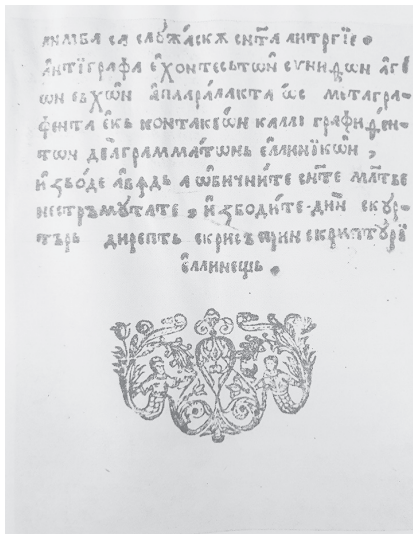 ꙟ҆ лиѩба сѧ слꙋжѧскѫ сн҃та литргїе.
а҆нтїграфа е҆хонтесътѡ̑н сѵниѳѡн а҆гѵ
ѡн еѵхѡ̑н а҆параллакта ѡ҆с метагра-
фента е҆къ контакѵѡн калли графиѳен-
тѡн дѵ́аграмматѡнъ е҆ллиникѡн,
и҆збо́де а҆вѳдь а ѡбичните сн҃те мл҃тве
нестръмꙋтате, и҆збоди́те дин скꙋр-
търь дирептъ скрисъ прин скриптꙋрї
е҆ллинещь.